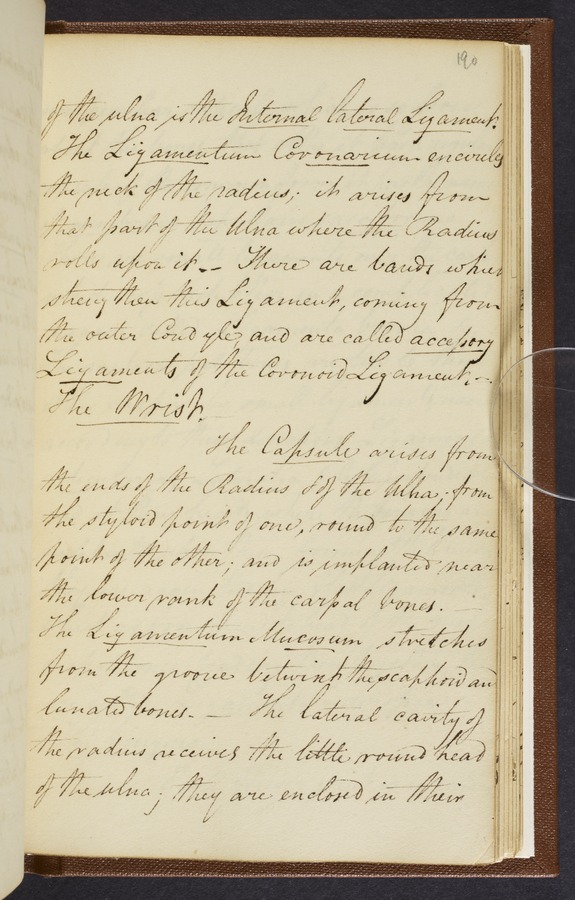 190
of the ulna is the Internal lateral Ligament.
The Ligamentum Coronarium encircles
the neck of the radius; it arises from
that part of the Ulna where the Radius
rolls upon it. – There are bands which
strengthen this Ligament, coming from
the outer Condyle, and are called accessory
Ligaments of the Coronoid Ligament. –
The Wrist.
The Capsule arises from
the ends of the Radius & of the Ulna; from
the styloid point of one, round to the same
point of the other; and is implanted near
the lower rank of the carpal bones. –
The Ligamentum Mucosum stretches
from the groove betwixt the scaphoid and
lunated bones. – The lateral cavity of
the radius receives the little round head
of the ulna; they are enclosed in their